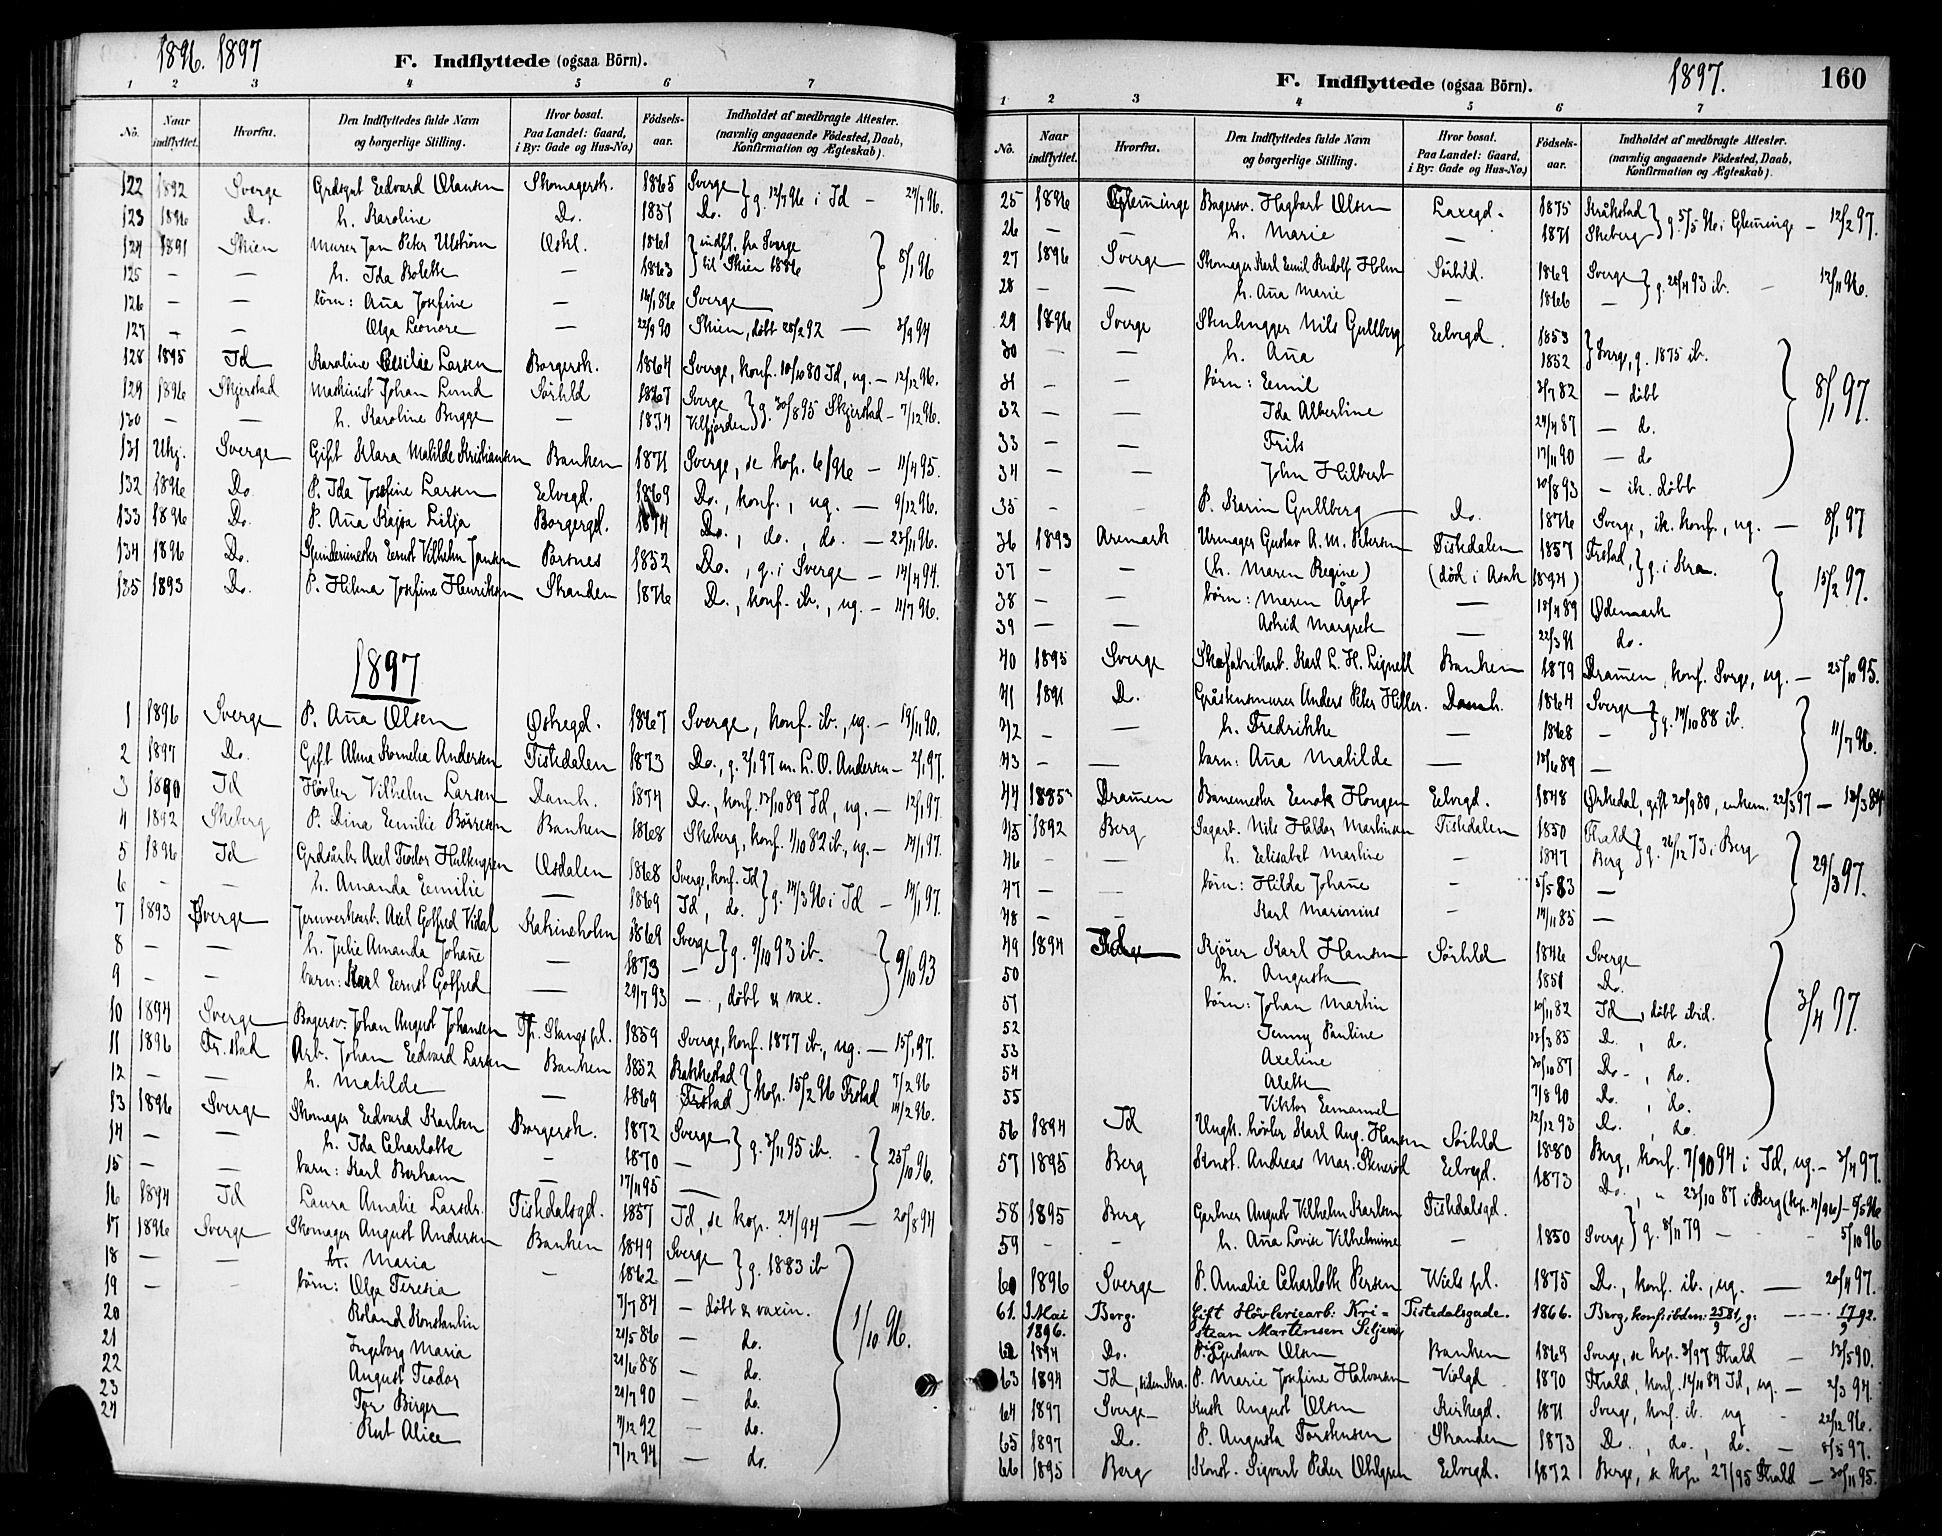 1896. 1897
F. Indflyttede (ogsaa Börn).
1 2 3 4 5 6 7
No. Naar indflyttet. Hvorfra. Den Indflyttedes fulde Navn og borgerlige Stilling. Hvor bosat. Paa Landet: Gaard, i By: Gade og Hus-No.) Födsels-aar. Indholdet af medbragte Attester. (navnlig angaaende Födested, Daab, Konfirmation og Ægteskab).
122 1892 Sverge Edvard Olausen 1865 Sverge } g. 12/7 96 i Id —
123 1896 Do. h. Karoline Do. 1851 Do.
124 1891 Skien Murer Jan Peter Ulström 1861 } indfl. fra Sverge } 8/1 96
125 — — h. Ida Bolette — 1863 til Skien 1886
126 — — börn: Aña Josefine — 14/1 86 Sverge
127 — — Olga Leonore — 22/9 90 Skien, döbt 28/2 92 — 3/9 94
128 1895 Id Karoline Cesilie Larsen Borgersk. 1864 Sverge, konf. 10/10 80 Id, ug. — 12/12 96.
129 1896 Skjerstad Maskinist Johan Lund Sörhld 1867 Sverge } g. 30/8 95 Skjerstad — 7/12 96.
130 — — h. Karoline Bugge — 1874 Vilfjorden
131 Sverge Gift Klara Matilde Kristiansen Banken 1871 Sverge, se kop. 6/96 — 11/4 95.
132 1896 Do. P. Ida Josefine Larsen Eelvegd. 1869 Do., konf., ug. — 9/12 96.
133 1896 Do. P. Aña Kajsa Lilja Borgergd. 1874 Do., do., do. — 23/11 96.
134 1896 Do. Ernst Vilhelm Jansen 1852 Do., g. i Sverge — 14/4 94.
135 1893 Do. P. Hilma Josefine Henriksen Stranden 1876 Do., konf. ib., ug. — 11/7 96.
1897
1 1896 Sverge P. Aña Olsen Østregd. 1867 Sverge, konf. ib., ug. — 19/11 90.
2 1897 Do. Gift Alma Kornelia Andersen Tistedalen 1873 Do., g. 2/1 97 m. L. O. Andersen — 2/1 97.
3 1890 Id Hövler Vilhelm Larsen Damh. 1874 Do., konf. 13/10 89 Id, ug. — 12/1 97.
4 1892 Skeberg P. Dina Emilie Börresen Banken 1868 Skeberg, konf. 1/10 82 ib., ug. — 14/1 97.
5 1896 Id Axel Teodor Hultengren Osdalen 1868 Sverge, konf. Id } g. 14/3 96 i Id — 14/1 97.
6 — — h. Amanda Emilie — 1869 Id, do.
7 1893 Sverge Jernverksarb. Axel Gotfred Vidal Katrineholm 1869 Sverge } g. 9/10 93 ib. } 9/10 93
8 — — h. Julie Amanda Johañe — 1873 —
9 — — barn: Karl Ernst Gotfred — 29/7 93 —, döbt & vax.
10 1894 Sverge Bagersv. Johan August Johansen Stangs pl. 1859 Sverge, konf. 1877 ib., ug. — 15/1 97.
11 1896 Fr.stad Arb. Johan Edvard Larsen Banken 1852 Rakkestad } kop. 15/2 96 Frstad 7/2 96
12 — — h. Matilde — 1869 Frstad 14/2 96.
13 1896 Sverge Skomager Edvard Karlsen Borgersk. 1872 Sverge } g. 3/11 95 ib. } 25/10 96.
14 — — h. Ida Charlotte — 1870 —
15 — — barn: Karl Bertram — 17/11 95 —
16 1894 Id Laura Amalie Larsdr. Tistedalsgd. 1857 Id, se kop. 24/94 — 20/8 94
17 1896 Sverge Skomager August Andersen Banken 1849 Sverge } g. 1883 ib } 1/10 96.
18 — hr. Maria — 1862 —
19 — börn: Olga Teresia 7/7 84 — döbt & vaxin.
20 Roland Konstantin 21/5 86 — do.
21 Ingeborg Maria 21/6 88 — do.
22 August Teodor 21/7 90 — do.
23 Tor Birger 4/12 92 — do.
24 Rut Alice 7/12 94 — do.
1897. 160
F. Indflyttede (ogsaa Börn).
1 2 3 4 5 6 7
No. Naar indflyttet. Hvorfra. Den Indflyttedes fulde Navn og borgerlige Stilling. Hvor bosat. Paa Landet: Gaard, i By: Gade og Hus-No.) Födsels-aar. Indholdet af medbragte Attester. (navnlig angaaende Födested, Daab, Konfirmation og Ægteskab).
25 1896 Glemminge Bagersv. Hagbart Olsen Laxegd. 1875 Kråkstad } g. 5/5 96 i Glem̃inge — 12/2 97.
26 — — h. Marie — 1871 Skeberg
27 1896 Sverge Skomager Karl Emil Rudolf Holm Sörhld. 1869 Sverge } g. 28/4 93 ib. — 13/11 96.
28 — — h. Aña Marie — 1866 —
29 1896 Sverge Stenhugger Nils Gullberg Eelvegd. 1853 } Sverge, g. 1875 ib. } 8/1 97.
30 — — h. Aña 1852
31 — — börn: Emil 3/7 82 — döbt
32 — — Ida Albertine 24/4 87 — do.
33 — — Frits 17/11 90 — do
34 — — John Hilbert 20/8 93 — ik. döbt
35 — — P. Karin Gullberg Do. 1876 Sverge, ik. konf., ug. — 8/1 97
36 1893 Aremark Urmager Gustav A. M. Petersen Tistedalen 1857 Frstad, } g. i Kra. } 15/2 97.
37 — — (h. Maren Regine) (död i Asak 1894)
38 — — börn: Maren Ågot — 18/4 89 Ødemark
39 — — Astrid Margrete — 22/3 91 do.
40 1895 Sverge Skofabrikarb. Karl L. H. Lignell Banken 1879 Dram̃en, konf. Sverge, ug. — 25/10 95.
41 1891 Do. Gråstensmurer Anders Peter Damh. 1864 Sverge } g. 14/10 88 ib. } 11/7 96.
42 — h. Fredrikke — 1868 —
43 — — barn: Aña Matilde — 18/6 89 —
44 1885 Dram̃en Banemester Enok Hongen Eelvegd. 1848 Ørkedal, gift 20/9 80, enkem. 22/3 97 — 18/3 84
45 1892 Berg Sagarb. Nils Haldor Martinsen Tistedalen 1850 Fhald } g. 26/12 73 i Berg } 29/3 97.
46 — — h. Elisabet Martine — 1847 Berg
47 — — börn: Hilda Johañe — 5/5 83 —
48 — — Karl Marinius — 14/11 85 —
49 1894 Id Kjörer Karl Hansen Sörhld 1846 Sverge } 3/4 97.
50 h. Augusta 1851 Do.
51 börn: Johan Martin 10/11 82 Id, döbt ibid.
52 Jenny Pauline 13/3 85 Do., do.
53 Axeline 30/10 87 Do., do.
54 Alette 7/8 90 Do., do.
55 Viktor Emanuel 12/12 93 Do., do.
56 1894 Id Ungk. hövler Karl Aug. Hansen Sörhld 1880 Berg, konf. 7/10 94 i Id, ug. — 3/4 97.
57 1895 Berg Konst. Andreas Mar. Eelvegd. 1873 Do., " 23/10 87 i Berg
58 1895 Berg Gartner August Vilhelm Karlsen Tistedalsgd. Sverge } g. 8/11 79 — 5/10 96
59 — — h. Aña Lovise Vilhelmine — 1850
60 1896 Sverge P. Amalie Charlotte Persen Wiels pl. 1875 Do., konf. ib., ug. — 20/4 97.
61. 1 Mai 1896. Berg. Gift Hövleriearb: Kristian Martinsen Tistedalsgade. 1866. Berg, konf ibdem: 25/9 81, g: — 17/9 92.
62 1894 Do. P. Gustava Olsen Banken 1869 Sverge, se kop. 3/97 Fhald — 13/5 90.
63 1894 Id, siden Kra. P. Marie Josefine Halvorsen Violgd 1870 Fhald, konf. 12/10 84 Id, ug. — 2/3 94.
64 1897 Sverge Kusk August Olsen Kirkegd. 1871 Sverge, konf. ib. ug — 22/12 96.
65 1897 Do. P. Augusta Torstensen Stranden 1873 Do., do., do. — 8/5 97.
66 1895 Berg Konst. Sigvart Peder Ohlgren Eelvegd. 1872 Berg, se kop 27/95 Fhald — 30/11 95.